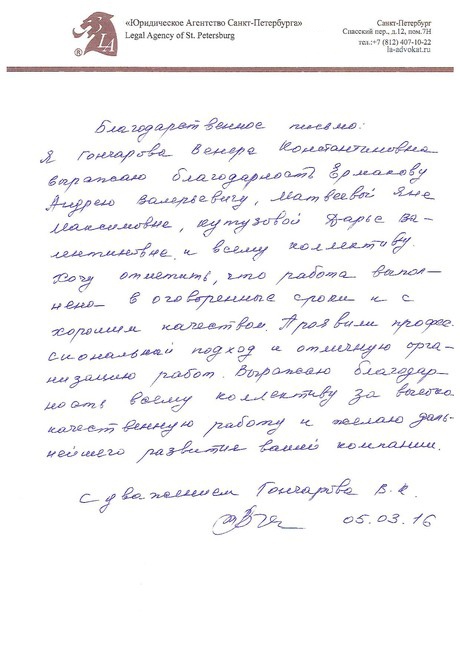 «Юридическое Агентство Санкт-Петербурга»
Legal Agency of St. Petersburg
Санкт-Петербург
Спасский пер., д.12, пом.7Н
тел.:+7 (812) 407-10-22
la-advokat.ru
LA
®
Благодарственное письмо:
Я Гончарова Венера Константиновна
выражаю благодарность Ермакову
Андрею Валерьевичу, Матвеевой Яне
Максимовне, Кутузовой Дарье Ва-
лентиновне и всему коллективу.
Хочу отметить, что работа выпол-
нено в оговоренные сроки и с
хорошим качеством. Проявили профес-
сиональный подход и отличную орга-
низацию работ. Выражаю благодар-
ность всему коллективу за высоко
качественную работу и желаю даль-
нейшего развития вашей компании.
С уважением Гончарова В.К.
05.03.16